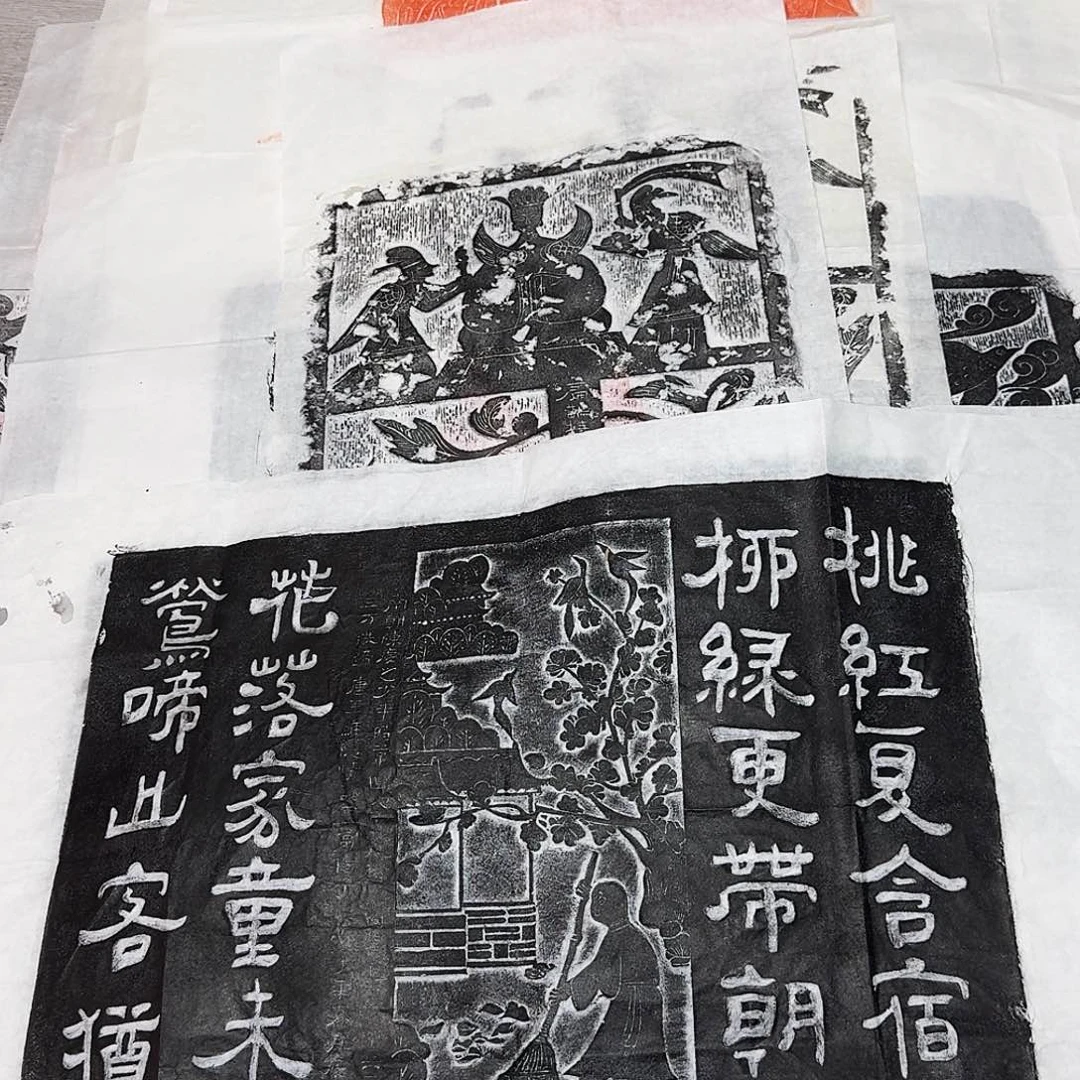 桃紅复含宿
柳緑更帶朝
花落家童未
鶯啼山客猶